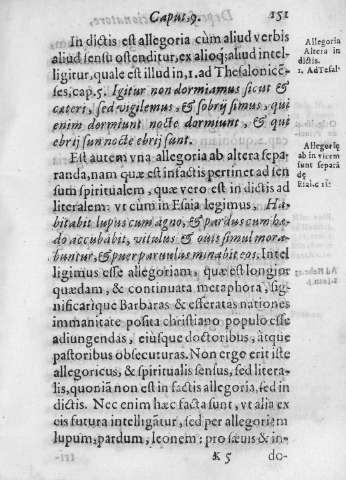 Caput. 9. 151
In dictis est allegoria cùm aliud verbis
aliud sensu ostenditur, ex alioq; aliud intel-
ligitur, quale est illud in, 1, ad Thesalonicē-
ses, cap. 5. Igitur non dormiamus sicut &
cæteri, sed vigilemus, & sobrij simus, qui
enim dormiunt nocte dormiunt, & qui
ebrij sun nocte ebrij sunt.
Est autem vna allegoria ab altera sepa-
randa, nam quæ est in factis pertinet ad sen
sum spiritualem, quæ vero est in dictis ad
literalem: vt cùm in Esaia legimus, Ha-
bitabit lupus cum agno, & pardus cum hæ-
do accubabit, vitulus & ouis simul mora-
buntur, & puer paruulus minabit eos. Intel
ligimus esse allegoriam, quæ est longior
quædam, & continuata metaphora, sig-
nificarique Barbaras & efferatas nationes
immanitate posita christiano populo esse
adiungendas, eiúsque doctoribus, átque
pastoribus obsecuturas. Non ergo erit iste
allegoricus, & spiritualis sensus, sed litera-
lis, quoniã non est in factis allegoria, sed in
dictis. Nec enim hæc facta sunt, vt alia ex
eis futura intelligãtur, sed per allegoriem
lupum, pardum, leonem: pro sæuis & in-
K 5 do-
Allegoria
Altera in
dictis.
1. AdTesal
Allegorię
ab in vicem
sunt separā
dę
Esai. c 11.